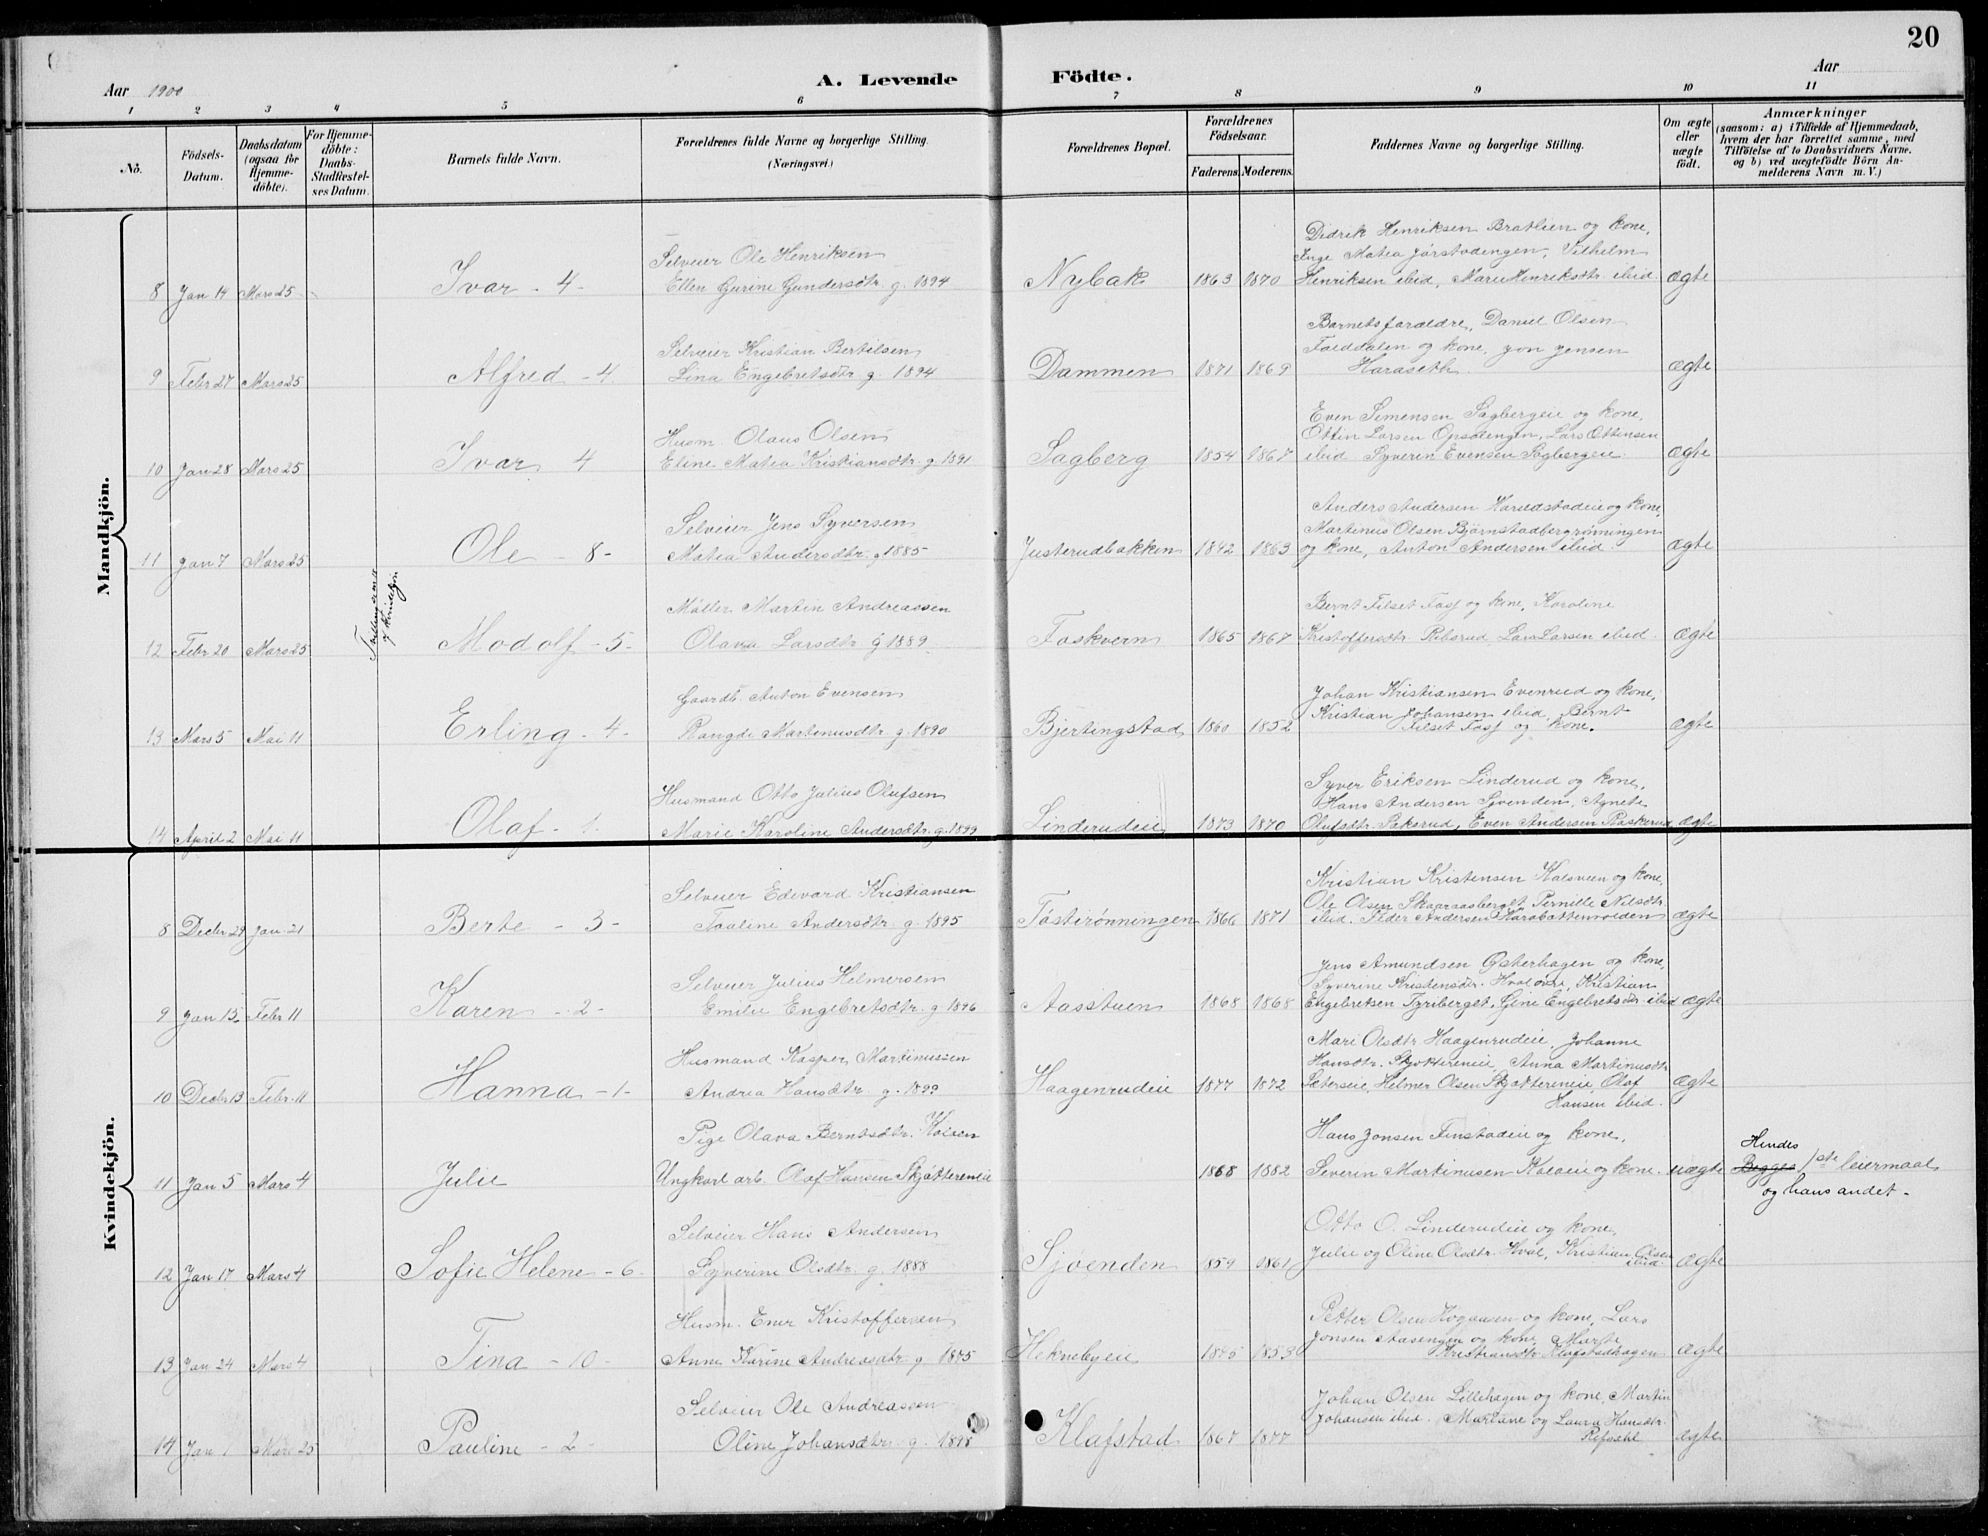 20
A. Levende Födte.
Aar 1900
Aar
1 2 3 4 5 6 7 8 9 10 11
No.
Födsels-Datum.
Daabsdatum (ogsaa for Hjemmedöbte).
For Hjemmedöbte: Daabs-Stadfæstelses Datum.
Barnets fulde Navn.
Forældrenes fulde Navne og borgerlige Stilling. (Næringsvei.)
Forældrenes Bopæl.
Forældrenes Födselsaar.
Faderens. Moderens.
Faddernes Navne og borgerlige Stilling.
Om ægte eller uægte födt.
Anmærkninger
(saasom: a) i Tilfælde af Hjemmedaab, hvem der har forrettet samme, med Tilföielse af to Daabsvidners Navne. og b) ved uægtefödte Börn Anmelderens Navn m. V.)
Mandkjön.
8 Jan 14 Mars 25 Ivar - 4 - Selveier Ole Henriksen
Ellen Gurine Gundersdtr. g. 1894 Nybak 1863 1870 Didrik Henriksen Bratlien og kone,
Inge Matea Jørstadengen, Vilhelm
Henriksen ibid, Marie Henriksdtr ibid. ægte
9 Febr 27 Mars 25 Alfred - 4 Selveier Kristian Bertilsen
Lina Engebretsdtr g. 1894 Dammen 1871 1869 Barnets forældre, Daniel Olsen
Folddalen og kone, Jon Jensen
Haraseth. ægte
10 Jan 28 Mars 25 Ivar - 4 Husm. Olaus Olsen
Eline Matea Kristiansdtr. g. 1891 Sagberg 1854 1867 Even Simensen Sagbergeie og kone,
Ottin Larsen Opsalengen, Lars Ottinsen
ibid Syverin Evensen Sagbergeie. ægte
11 Jan 7 Mars 25 Ole - 8 - Selveier Jens Syversen
Matea Andersdtr. g 1885 Justerudbakken 1842 1863 Anders Andersen Harildstadeie og kone,
Martinus Olsen Bjørnstadbergrønningen
og kone, Anton Andersen ibid. ægte
Tvilling som er af Kvindekjøn
12 Febr 20 Mars 25 Modolf - 5 - Møller Martin Andreassen
Olava Larsdtr g 1889 Foskvern 1865 1867 Bernt Filset Fosf og kone, Karoline
Kristoffersdtr. Ribsrud, Lars Larsen ibid. ægte
13 Mars 5 Mai 11 Erling - 4 - Gaardb. Anton Evensen
Rangdi Martinusdtr g. 1890 Bjertingstad 1860 1852 Johan Kristiansen Evenrud og kone,
Kristian Johansen ibid. Bernt
Filset Fosf og kone. ægte
14 April 2 Mai 11 Olaf - 1. Husmand Otto Julius Olufsen
Marie Karoline Andersdtr. g. 1899 Linderudeie 1873 1870 Syver Eriksen Linderud og kone,
Hans Andersen Sjvenden, Agnete
Olufsdtr. Roksrud, Even Andersen Roskerud ægte
Kvindekjön.
8 Decbr 29 Jan. 21 Berte - 3 - Selveier Edevard Kristiansen
Taaline Andersdtr g. 1895 Tøstirønningen 1866 1871 Kristian Kristensen Kalsveen og kone,
Ole Olsen Skaaraasberget Pernille Nilsdtr.
ibid. Peder Andersen Karabattenvolden ægte
9 Jan 15 Febr 11 Karen - 2 - Selveier Julius Helmersen
Emilie Engebretsdtr. g 1896 Aasstuen 1868 1868 Jens Amundsen Østerhagen og kone,
Syverine Kristensdtr. Hval øvre, Kristian
Engebretsen Tyriberget, Gine Engebretsdtr ibid ægte
10 Decbr 13 Febr. 11 Hanna - 1 - Husmand Kasper Martinussen
Andrea Hansdtr. g. 1899 Haagenrudeie 1877 1872 Mari Olsdtr Haagenrudeie, Johanne
Hansdtr. Skjøttereneie, Anna Martinusdtr
Sæterseie, Helmer Olsen Skjøttereneie Olaf
Hansen ibid. ægte
11 Jan 5 Mars 4 Julie Pige Olava Berntsdtr. Kolsen
Ungkarl arb. Olaf Hansen Skjøttereneie 1868 1882 Hans Jonsen Finstadeie og kone,
Severin Martinusen Kolseie og kone. uægte Hendes
Begges 1ste leiermaal
og hans andet.
12 Jan 17 Mars 4 Sofie Helene - 6 - Selveier Hans Andersen
Syverine Olsdtr. g. 1888 Sjøenden 1859 1861 Otto O. Linderudeie og kone,
Julie og Oline Olsdtr. Hval, Kristian Olsen
ibid. ægte
13 Jan 24 Mars 4 Tina - 10 - Husm. Ener Kristoffersen
Anne Karine Andreasdtr. g 1875 Heknebyeie 1845 1853 Petter Olsen Hogaasen og kone, Lars
Jonsen Aasengen og kone, Marte
Kristiansdtr. Klafstadhagen ægte
14 Jan 1 Mars 25 Pauline - 2 - Selveier Ole Andreassen
Oline Johansdtr. g. 1898 Klafstad 1867 1877 Johan Olsen Lillehagen og kone, Martin
Johansen ibid. Mariane og Laura Hansdtr.
Refsahl ægte